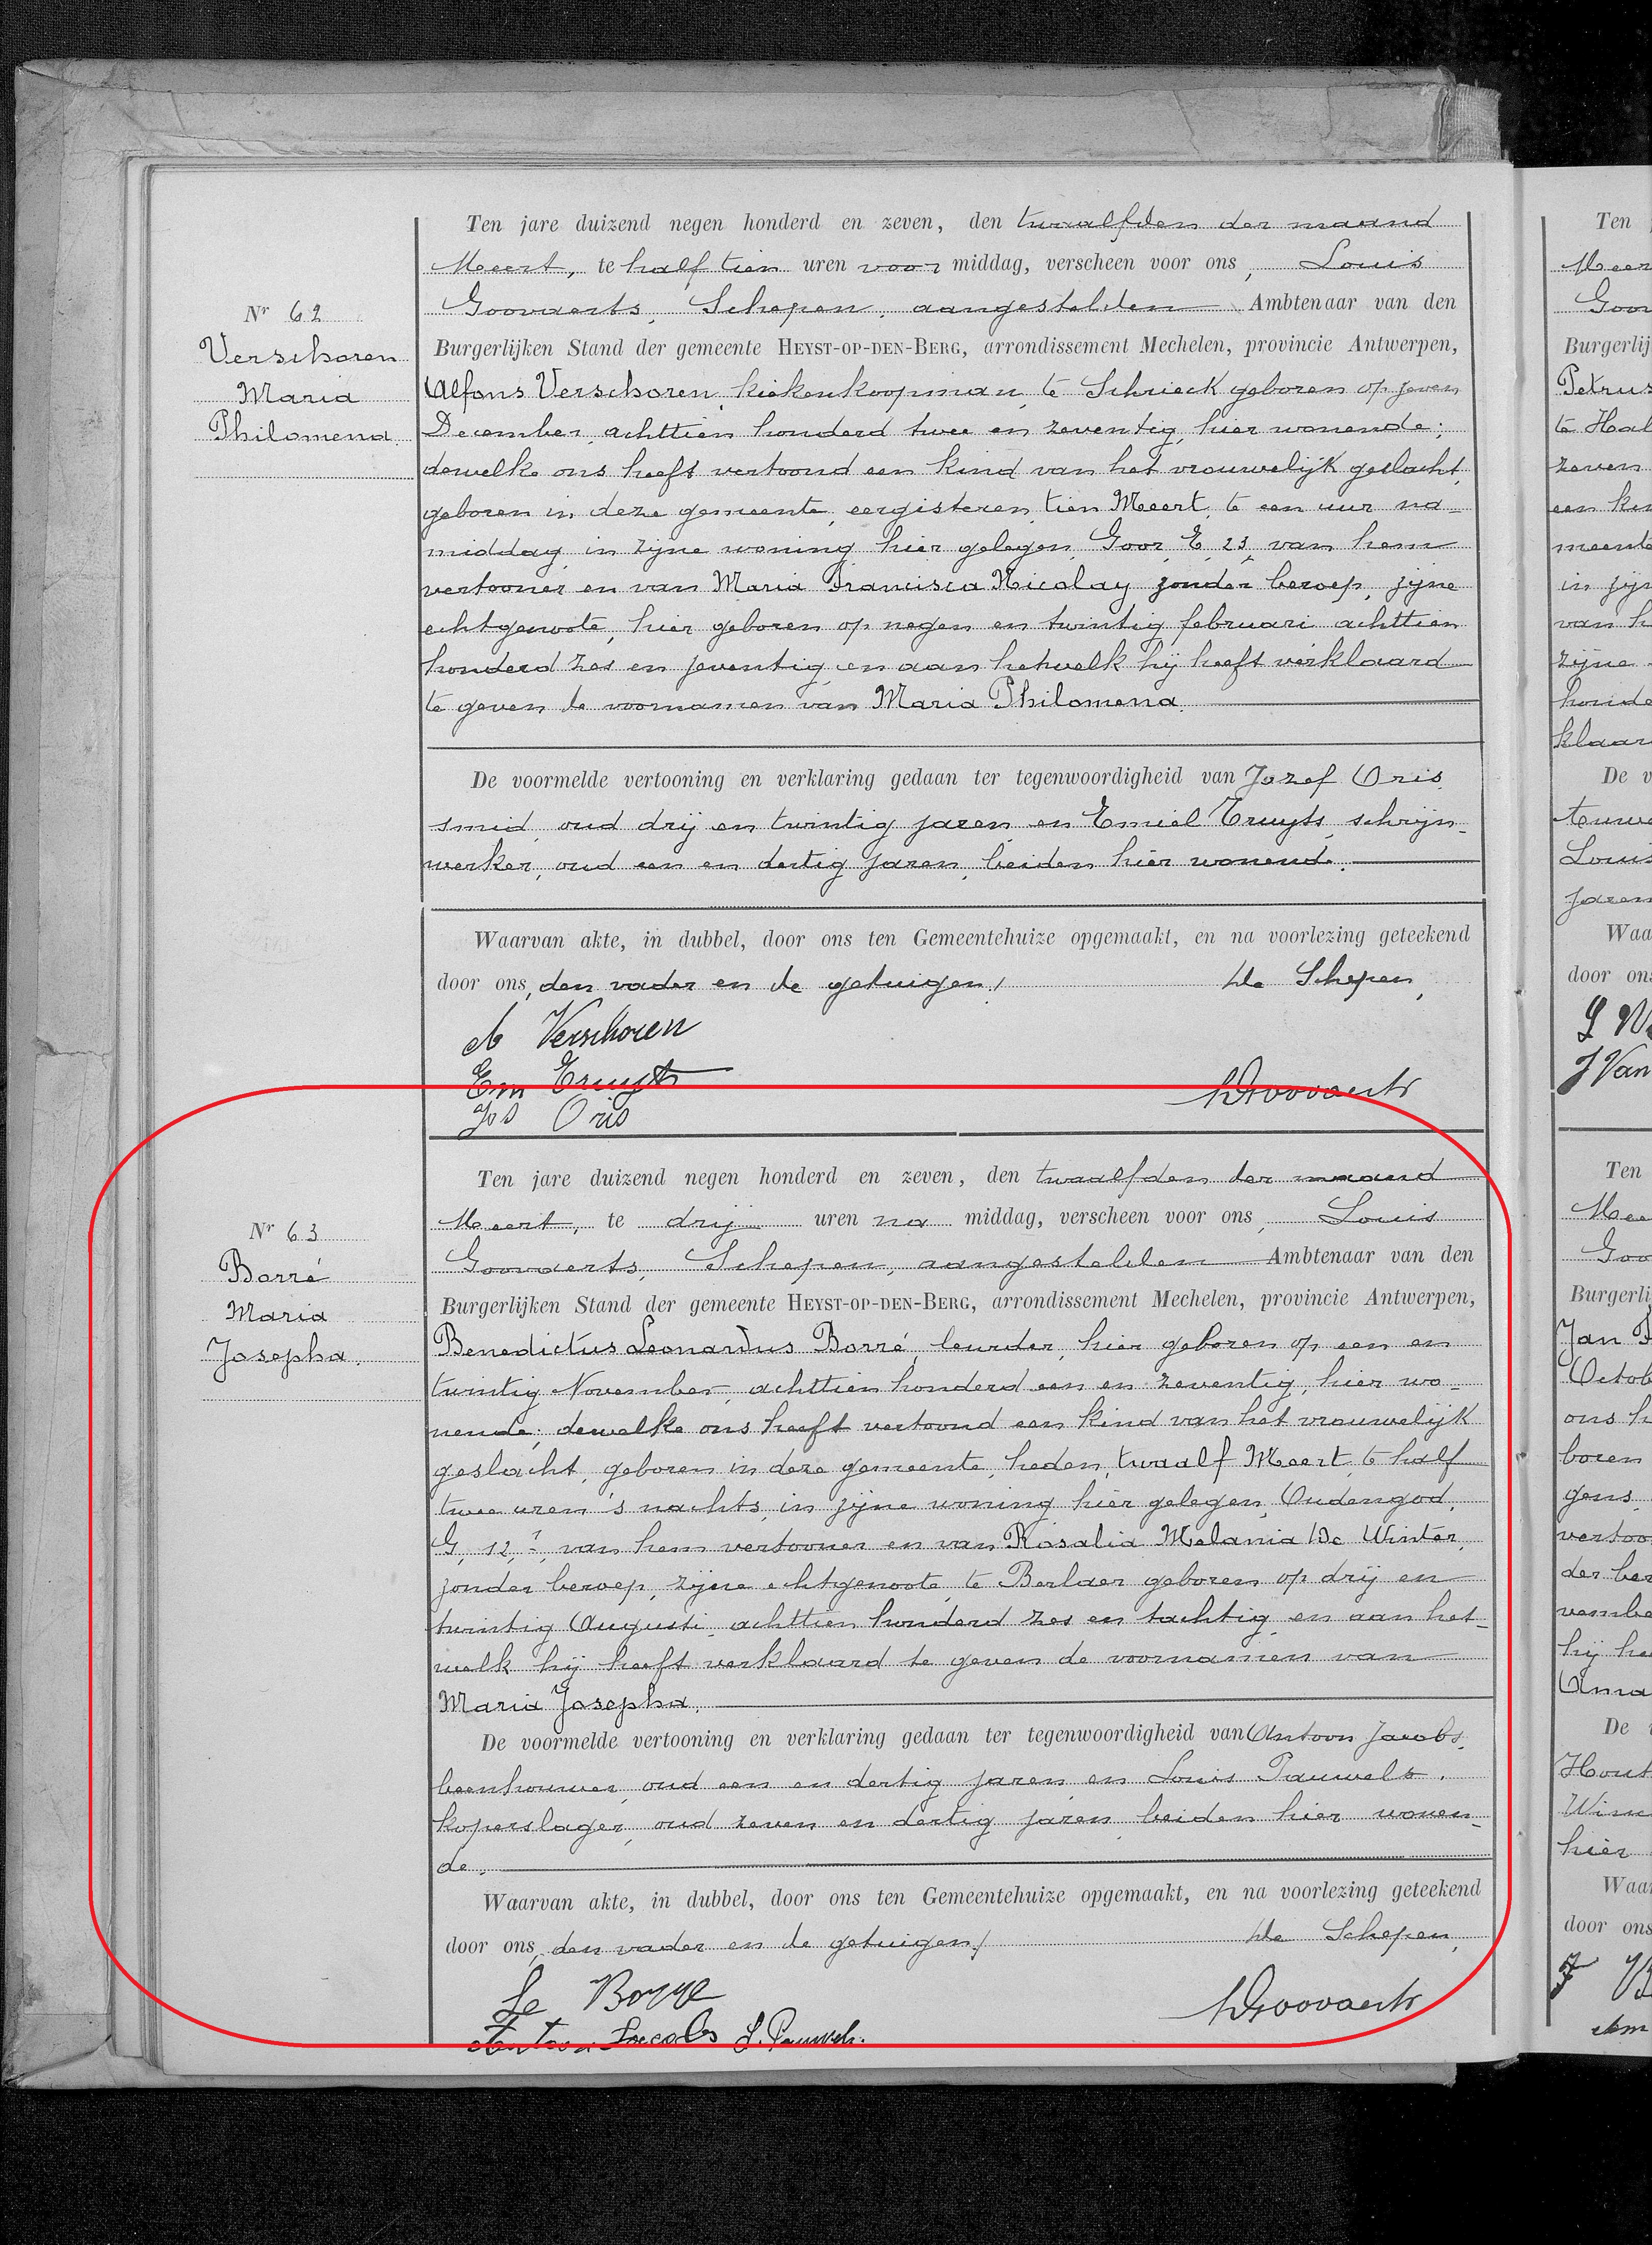 Ten jare duizend negen honderd en zeven, den twaalfden der maand
Meert, te half tien uren voor middag, verscheen voor ons, Louis
Goovaerts, Schepen, aangestelden Ambtenaar van den
Nr 62
Burgerlijken Stand der gemeente HEYST-OP-DEN-BERG, arrondissement Mechelen, provincie Antwerpen,
Verschoren
Maria
Philomena
Alfons Verschoren, kiekenkoopman, te Schrieck geboren op zeven
December, achttien honderd twee en zeventig, hier wonende;
dewelke ons heeft vertoond een kind van het vrouwelijk geslacht,
geboren in deze gemeente, eergisteren, tien Meert, te een uur na-
middag, in zijne woning hier gelegen, Goor E, 23, van hem
vertooner en van Maria Francisca Nicolay zonder beroep, zijne
echtgenoote, hier geboren op negen en twintig februari achttien
honderd zes en zeventig, en aan hetwelk hij heeft verklaard
te geven de voornamen van Maria Philomena.
De voormelde vertooning en verklaring gedaan ter tegenwoordigheid van Jozef Oris,
smid, oud drij en twintig jaren en Emiel Truyts, schrijn-
werker, oud een en dertig jaren, beiden hier wonende.
Waarvan akte, in dubbel, door ons ten Gemeentehuize opgemaakt, en na voorlezing geteekend
door ons, den vader en de getuigen./ De Schepen,
A Verschoren
Em Truyts
Jos Oris
LGoovaerts
Ten jare duizend negen honderd en zeven, den twaalfden der maand
Meert, te drij uren na middag, verscheen voor ons, Louis
Goovaerts, Schepen, aangestelden Ambtenaar van den
Nr 63
Burgerlijken Stand der gemeente HEYST-OP-DEN-BERG, arrondissement Mechelen, provincie Antwerpen,
Borré
Maria
Josepha.
Benedictus Leonardus Borré, leurder, hier geboren op een en
twintig November, achttien honderd een en zeventig, hier wo-
nende; dewelke ons heeft vertoond een kind van het vrouwelijk
geslacht, geboren in deze gemeente, heden, twaalf Meert, te half
twee uren 's nachts, in zijne woning hier gelegen, Oudengod,
G, 12, van hem vertooner en van Rosalia Melania De Winter,
zonder beroep, zijne echtgenoote, te Berlaer geboren op drij en
twintig Augusti, achttien honderd zes en tachtig, en aan het-
welk hij heeft verklaard te geven de voornamen van
Maria Josepha.
De voormelde vertooning en verklaring gedaan ter tegenwoordigheid van Antoon Jacobs,
beenhouwer, oud een en dertig jaren en Louis Pauwels,
koperslager, oud zeven en dertig jaren, beiden hier wonen-
de.
Waarvan akte, in dubbel, door ons ten Gemeentehuize opgemaakt, en na voorlezing geteekend
door ons, den vader en de getuigen./ De Schepen,
Le Borre
Antoon Jacobs L. Pauwels.
LGoovaerts
Ten
Meer
Goov
Burgerlij
Petrus
te Hal
zeven
een kin
meente
in zijn
van h
zijne
honde
klaar
De v
Louis
jaren
Waa
door ons
J Van
Ten
Mee
Goo
Burgerli
Jan
Octob
ons h
boren
gens,
vertoo
der ber
vembe
hij he
Anna
De
Hout
hier
Waa
door ons